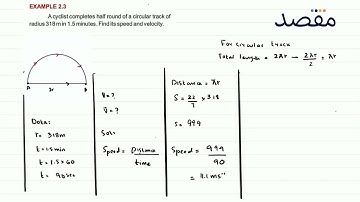 EXAMPLE 2.3
A cyclist completes half round of a circular track of
radius 318 m in 1.5 minutes. Find its speed and velocity.
مقصد
For circular track
Total length = 2πr → 2πr/2 = πr
A 2r B
Data:
r = 318m
t = 1.5 min
t = 1.5 × 60
t = 90 sec
V = ?
V⃗ = ?
Sol:
Speed = Distance / time
Distance = πr
S = 22/7 × 318
S = 999
Speed = 999 / 90
= 11.1 ms⁻¹